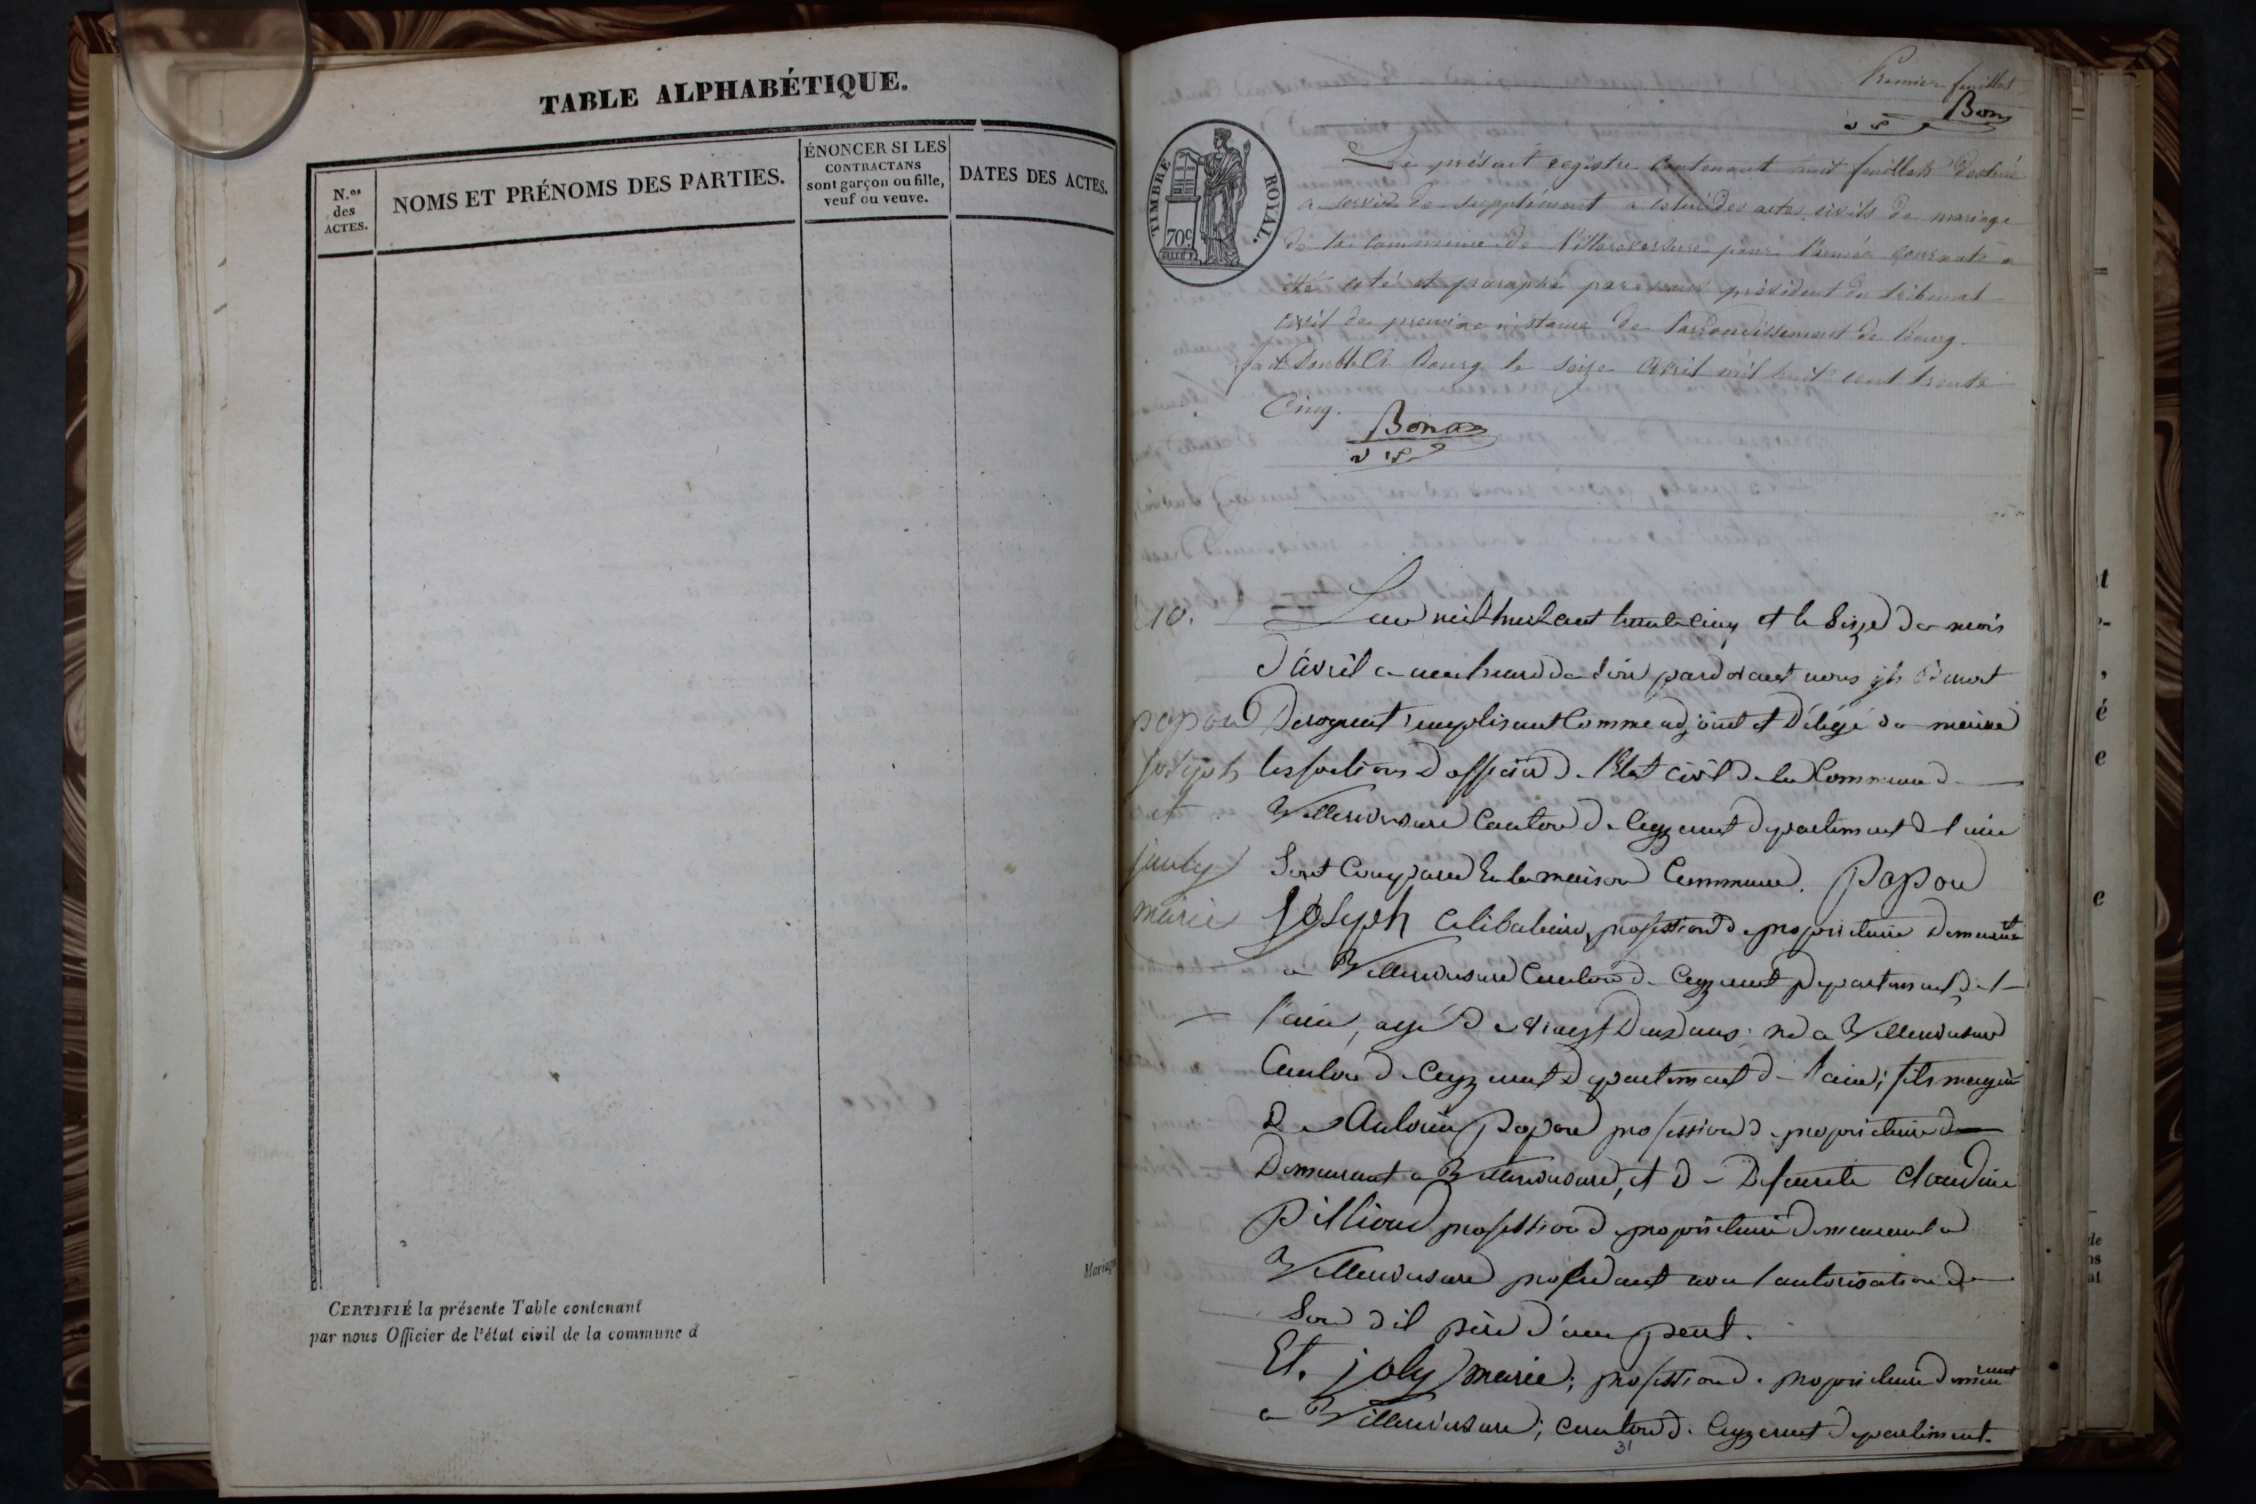 TABLE ALPHABÉTIQUE.
N.os
des
ACTES.
NOMS ET PRÉNOMS DES PARTIES.
ÉNONCER SI LES
CONTRACTANS
sont garçon ou fille,
veuf ou veuve.
DATES DES ACTES.
CERTIFIÉ la présente Table contenant
par nous Officier de l'état civil de la commune d
Premier feuillet
Bon
TIMBRE ROYAL.
70c
Le présent registre contenant huit feuillets destiné
a servir de supplément a celui des actes civils de mariage
de la commune de Villereversure pour l'année courante a
été coté et paraphé par nous président du tribunal
civil de premiere instance de l'arrondissement de Bourg.
fait double a Bourg le seize avril mil huit cent trente
Cinq.
10.
L'an mil huit cent trente cinq et le seize du mois
d'avril a heure de pardevant nous
remplisant comme adjoint et Délégé du maire
les fontions d'officier de l'Etat civil de la Commune de
Villereversure Canton de Ceyzeriat departement de l'ain
Sont Comparu En la maison Commune. Popon
Joseph Célibataire, profession de propriétaire demeurant
a Villereversure Canton de Ceyzeriat Departement de
l'ain, agé De vingt Deux ans né a Villereversure
Canton de Ceyzeriat departement de l'ain; fils majeur
De Antoine Popon profession de propriétaire
Demeurant a Villereversure, et De Defunte Claudine
Pillion profession de propriétaire demeurant a
Villereversure procédant avec l'autorisation de
Son dit père d'une part.
Et. joly marie; profession de propriétaire demeurant
a Villereversure; canton de Ceyzeriat departement.
popon
joseph
et
marie
31